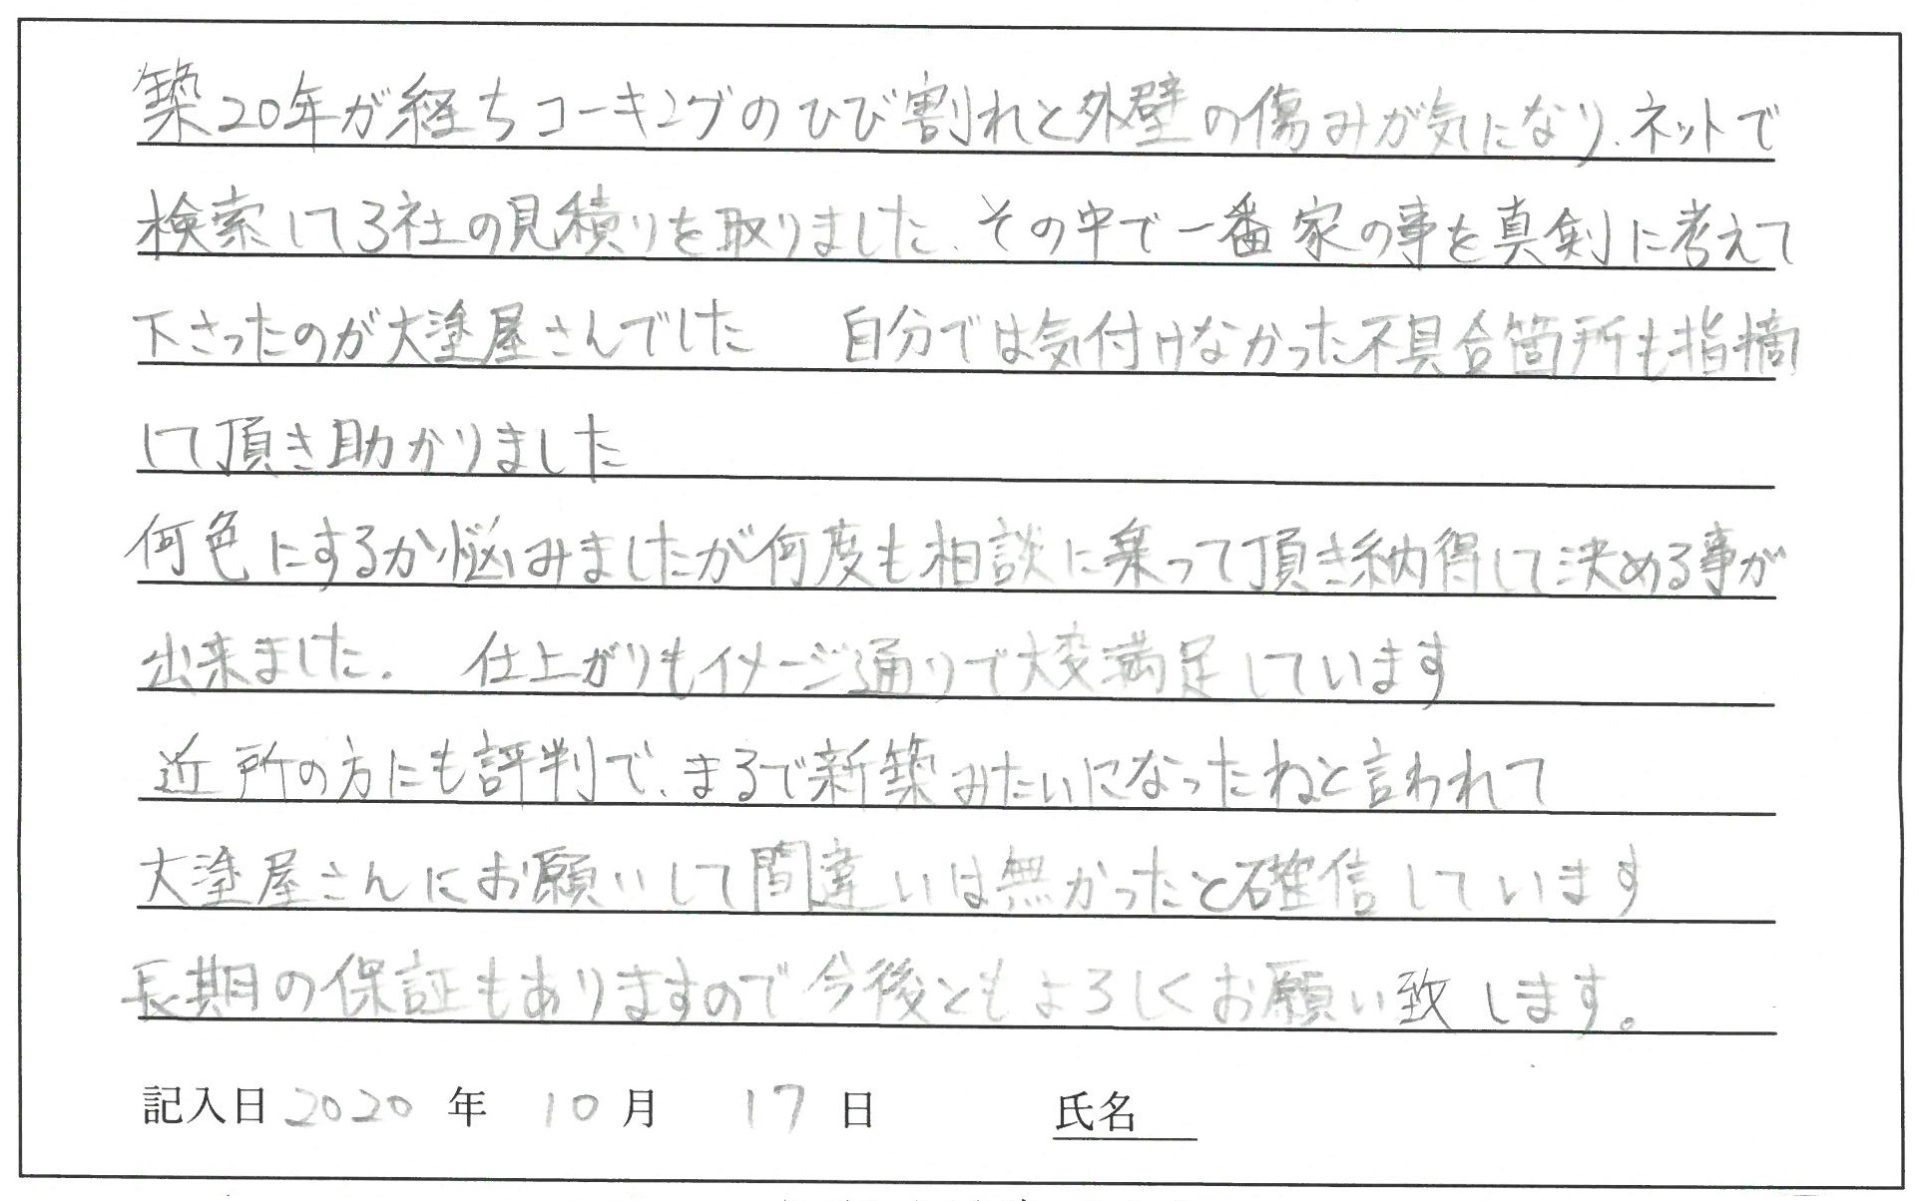 築20年が経ちコーキングのひび割れと外壁の傷みが気になり、ネットで
検索して3社の見積りを取りました、その中で一番家の事を真剣に考えて
下さったのが大塗屋さんでした　自分では気付けなかった不具合箇所も指摘
して頂き助かりました
何色にするか悩みましたが何度も相談に乗って頂き納得して決める事が
出来ました。　仕上がりもイメージ通りで大変満足しています
近所の方にも評判で、まるで新築みたいになったねと言われて
大塗屋さんにお願いして間違いは無かったと確信しています
長期の保証もありますので今後ともよろしくお願い致します。
記入日 2020 年 10 月 17 日 氏名